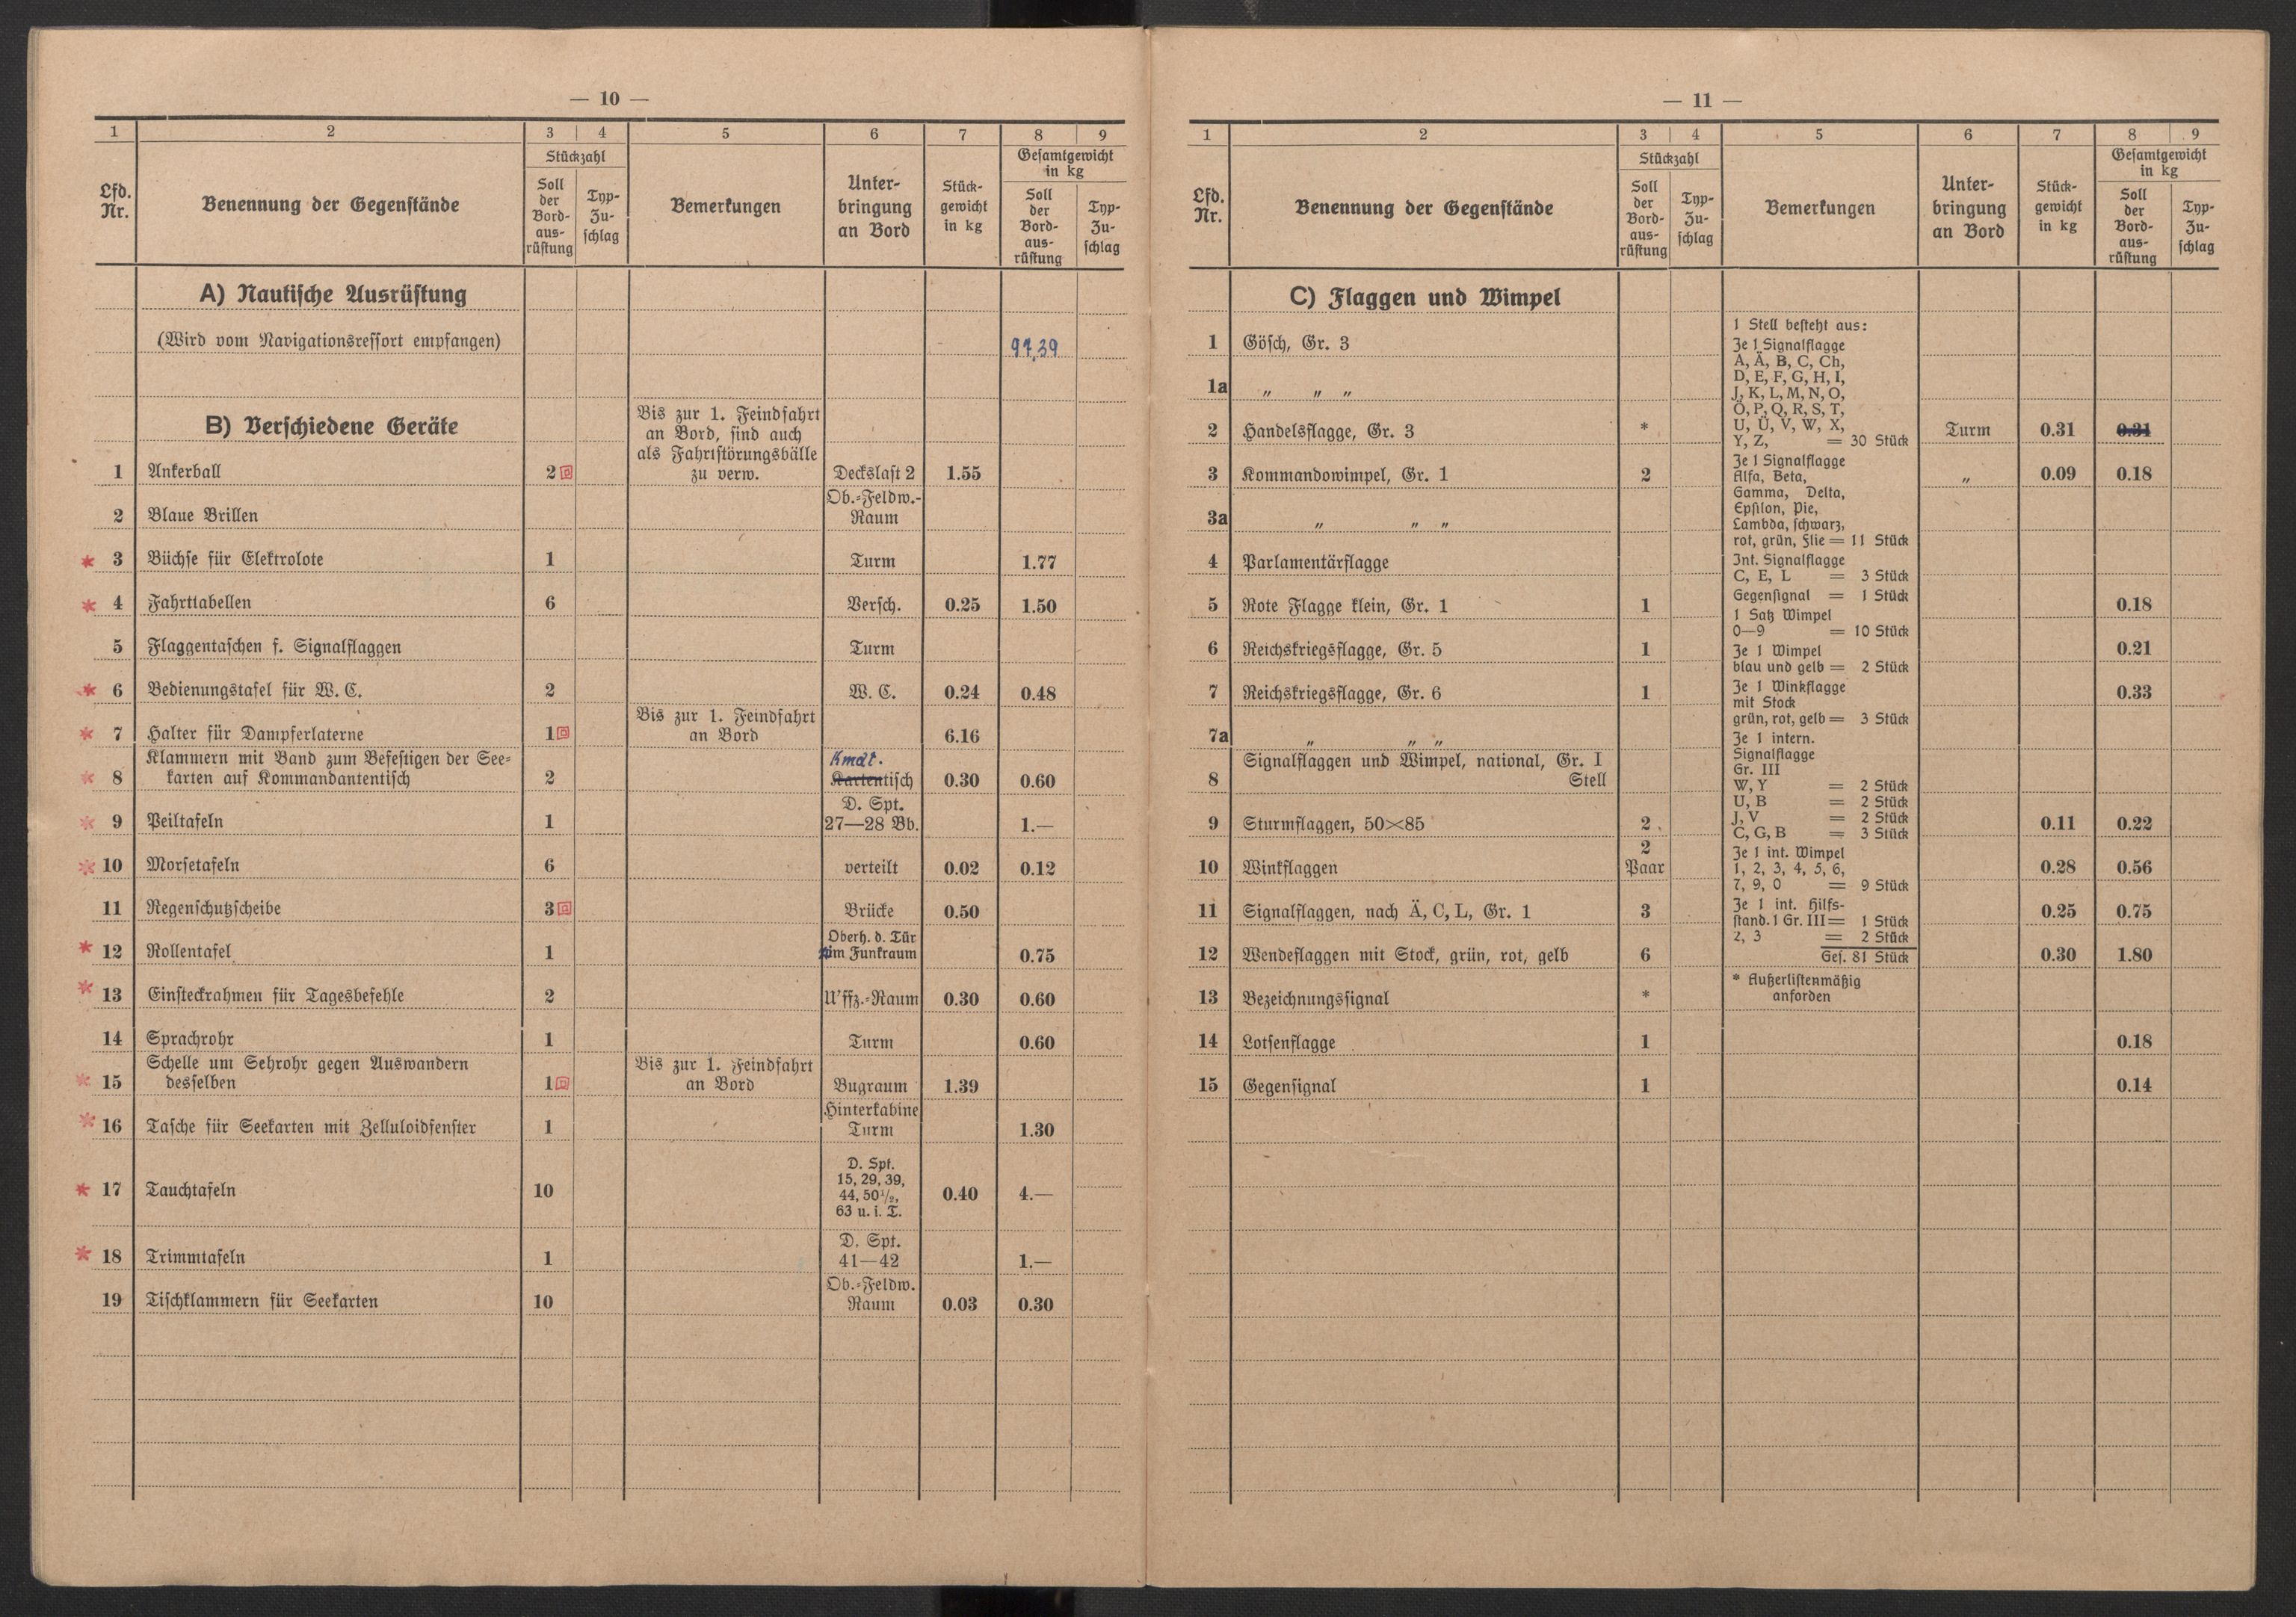 — 10 —
1 2 3 4 5 6 7 8 9
Lfd. Nr. Benennung der Gegenstände Stückzahl Soll der Bord-aus-rüstung Typ-Zu-schlag Bemerkungen Unter-bringung an Bord Stück-gewicht in kg Gesamtgewicht in kg Soll der Bord-aus-rüstung Typ-Zu-schlag
A) Nautische Ausrüstung
(Wird vom Navigationsressort empfangen) 97,39
B) Verschiedene Geräte
Bis zur 1. Feindfahrt
an Bord, sind auch
als Fahrtstörungsbälle
zu verw.
1 Ankerball 2 Deckslast 2 1.55
2 Blaue Brillen Ob.-Feldw.-Raum
* 3 Büchse für Elektrolote 1 Turm 1.77
* 4 Fahrttabellen 6 Versch. 0.25 1.50
5 Flaggentaschen f. Signalflaggen Turm
* 6 Bedienungstafel für W. C. 2 W. C. 0.24 0.48
* 7 Halter für Dampferlaterne 1 Bis zur 1. Feindfahrt an Bord 6.16
* 8 Klammern mit Band zum Befestigen der See-
karten auf Kommandantentisch 2 Kmdt. Kartentisch 0.30 0.60
* 9 Peiltafeln 1 D. Spt. 27—28 Bb. 1.—
* 10 Morsetafeln 6 verteilt 0.02 0.12
11 Regenschutzscheibe 3 Brücke 0.50
* 12 Rollentafel 1 Oberh. d. Tür im Funkraum 0.75
* 13 Einsteckrahmen für Tagesbefehle 2 U'ffz.-Raum 0.30 0.60
14 Sprachrohr 1 Turm 0.60
* 15 Schelle um Sehrohr gegen Auswandern
desselben 1 Bis zur 1. Feindfahrt an Bord Bugraum 1.39
* 16 Tasche für Seekarten mit Zelluloidfenster 1 Hinterkabine Turm 1.30
* 17 Tauchtafeln 10 D. Spt. 15, 29, 39, 44, 50½, 63 u. i. T. 0.40 4.—
* 18 Trimmtafeln 1 D. Spt. 41—42 1.—
19 Tischklammern für Seekarten 10 Ob.-Feldw. Raum 0.03 0.30
— 11 —
1 2 3 4 5 6 7 8 9
Lfd. Nr. Benennung der Gegenstände Stückzahl Soll der Bord-aus-rüstung Typ-Zu-schlag Bemerkungen Unter-bringung an Bord Stück-gewicht in kg Gesamtgewicht in kg Soll der Bord-aus-rüstung Typ-Zu-schlag
C) Flaggen und Wimpel
1 Gösch, Gr. 3
1a „ „ „
2 Handelsflagge, Gr. 3 * Turm 0.31 0.31
3 Kommandowimpel, Gr. 1 2 „ 0.09 0.18
3a „ „ „
4 Parlamentärflagge
5 Rote Flagge klein, Gr. 1 1 0.18
6 Reichskriegsflagge, Gr. 5 1 0.21
7 Reichskriegsflagge, Gr. 6 1 0.33
7a „ „ „
8 Signalflaggen und Wimpel, national, Gr. I
Stell
9 Sturmflaggen, 50×85 2 0.11 0.22
10 Winkflaggen 2 Paar 0.28 0.56
11 Signalflaggen, nach Ä, C, L, Gr. 1 3 0.25 0.75
12 Wendeflaggen mit Stock, grün, rot, gelb 6 0.30 1.80
13 Bezeichnungssignal *
14 Lotsenflagge 1 0.18
15 Gegensignal 1 0.14
1 Stell besteht aus:
Je 1 Signalflagge
A, Ä, B, C, Ch,
D, E, F, G, H, I,
J, K, L, M, N, O,
Ö, P, Q, R, S, T,
U, Ü, V, W, X,
Y, Z, = 30 Stück
Je 1 Signalflagge
Alfa, Beta,
Gamma, Delta,
Epsilon, Pie,
Lambda, schwarz,
rot, grün, Flie = 11 Stück
Int. Signalflagge
C, E, L = 3 Stück
Gegensignal = 1 Stück
1 Satz Wimpel
0—9 = 10 Stück
Je 1 Wimpel
blau und gelb = 2 Stück
Je 1 Winkflagge
mit Stock
grün, rot, gelb = 3 Stück
Je 1 intern.
Signalflagge
Gr. III
W, Y = 2 Stück
U, B = 2 Stück
J, V = 2 Stück
C, G, B = 3 Stück
Je 1 int. Wimpel
1, 2, 3, 4, 5, 6,
7, 9, 0 = 9 Stück
Je 1 int. Hilfs-
stand. 1 Gr. III = 1 Stück
2, 3 = 2 Stück
Ges. 81 Stück
* Außerlistenmäßig
anfordern